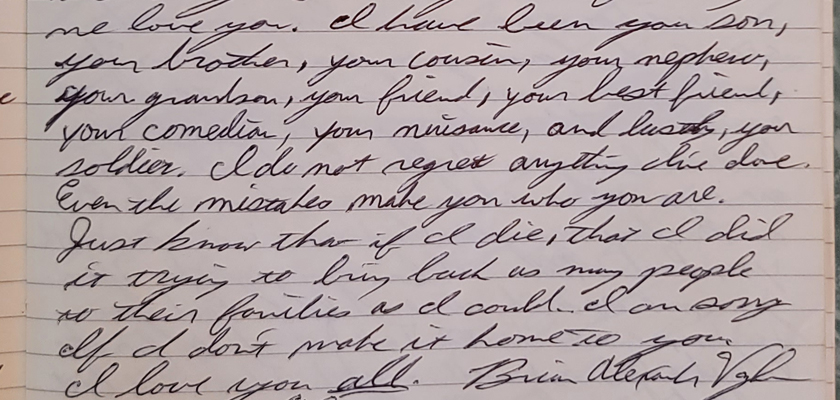 me love you. I have been your son,
your brother, your cousin, your nephew,
your grandson, your friend, your best friend,
your comedian, your nuisance, and lastly, your
soldier. I do not regret anything I've done.
Even the mistakes make you who you are.
Just know that if I die, that I did
it trying to bring back as many people
to their families as I could. I am sorry
If I don't make it home to you.
I love you all. Brian Alexander